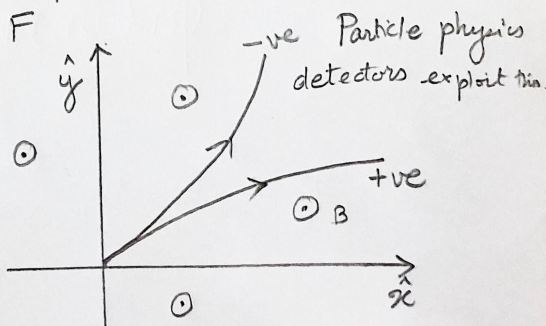 F
-ve Particle physics
ŷ detectors exploit this.
+ve
B
x̂